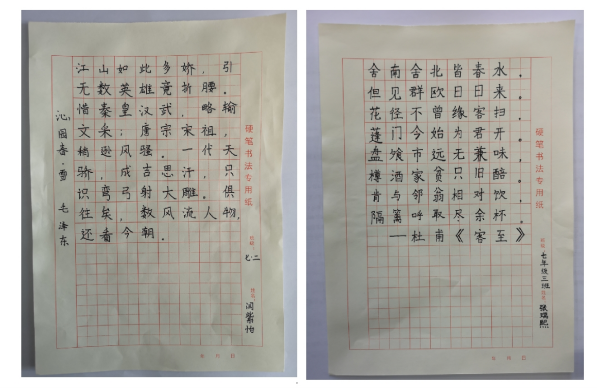 沁园春·雪 毛泽东
江山如此多娇，引
无数英雄竞折腰。
惜秦皇汉武，略输
文采；唐宗宋祖，
稍逊风骚。一代天
骄，成吉思汗，只
识弯弓射大雕。俱
往矣，数风流人物，
还看今朝。
硬笔书法专用纸
七.二
闫紫怡
舍南舍北皆春水，
但见群鸥日日来。
花径不曾缘客扫，
蓬门今始为君开。
盘飧市远无兼味，
樽酒家贫只旧醅。
肯与邻翁相对饮，
隔篱呼取尽余杯。
——杜甫《客至》
硬笔书法专用纸
七年级三班
张瑞熙